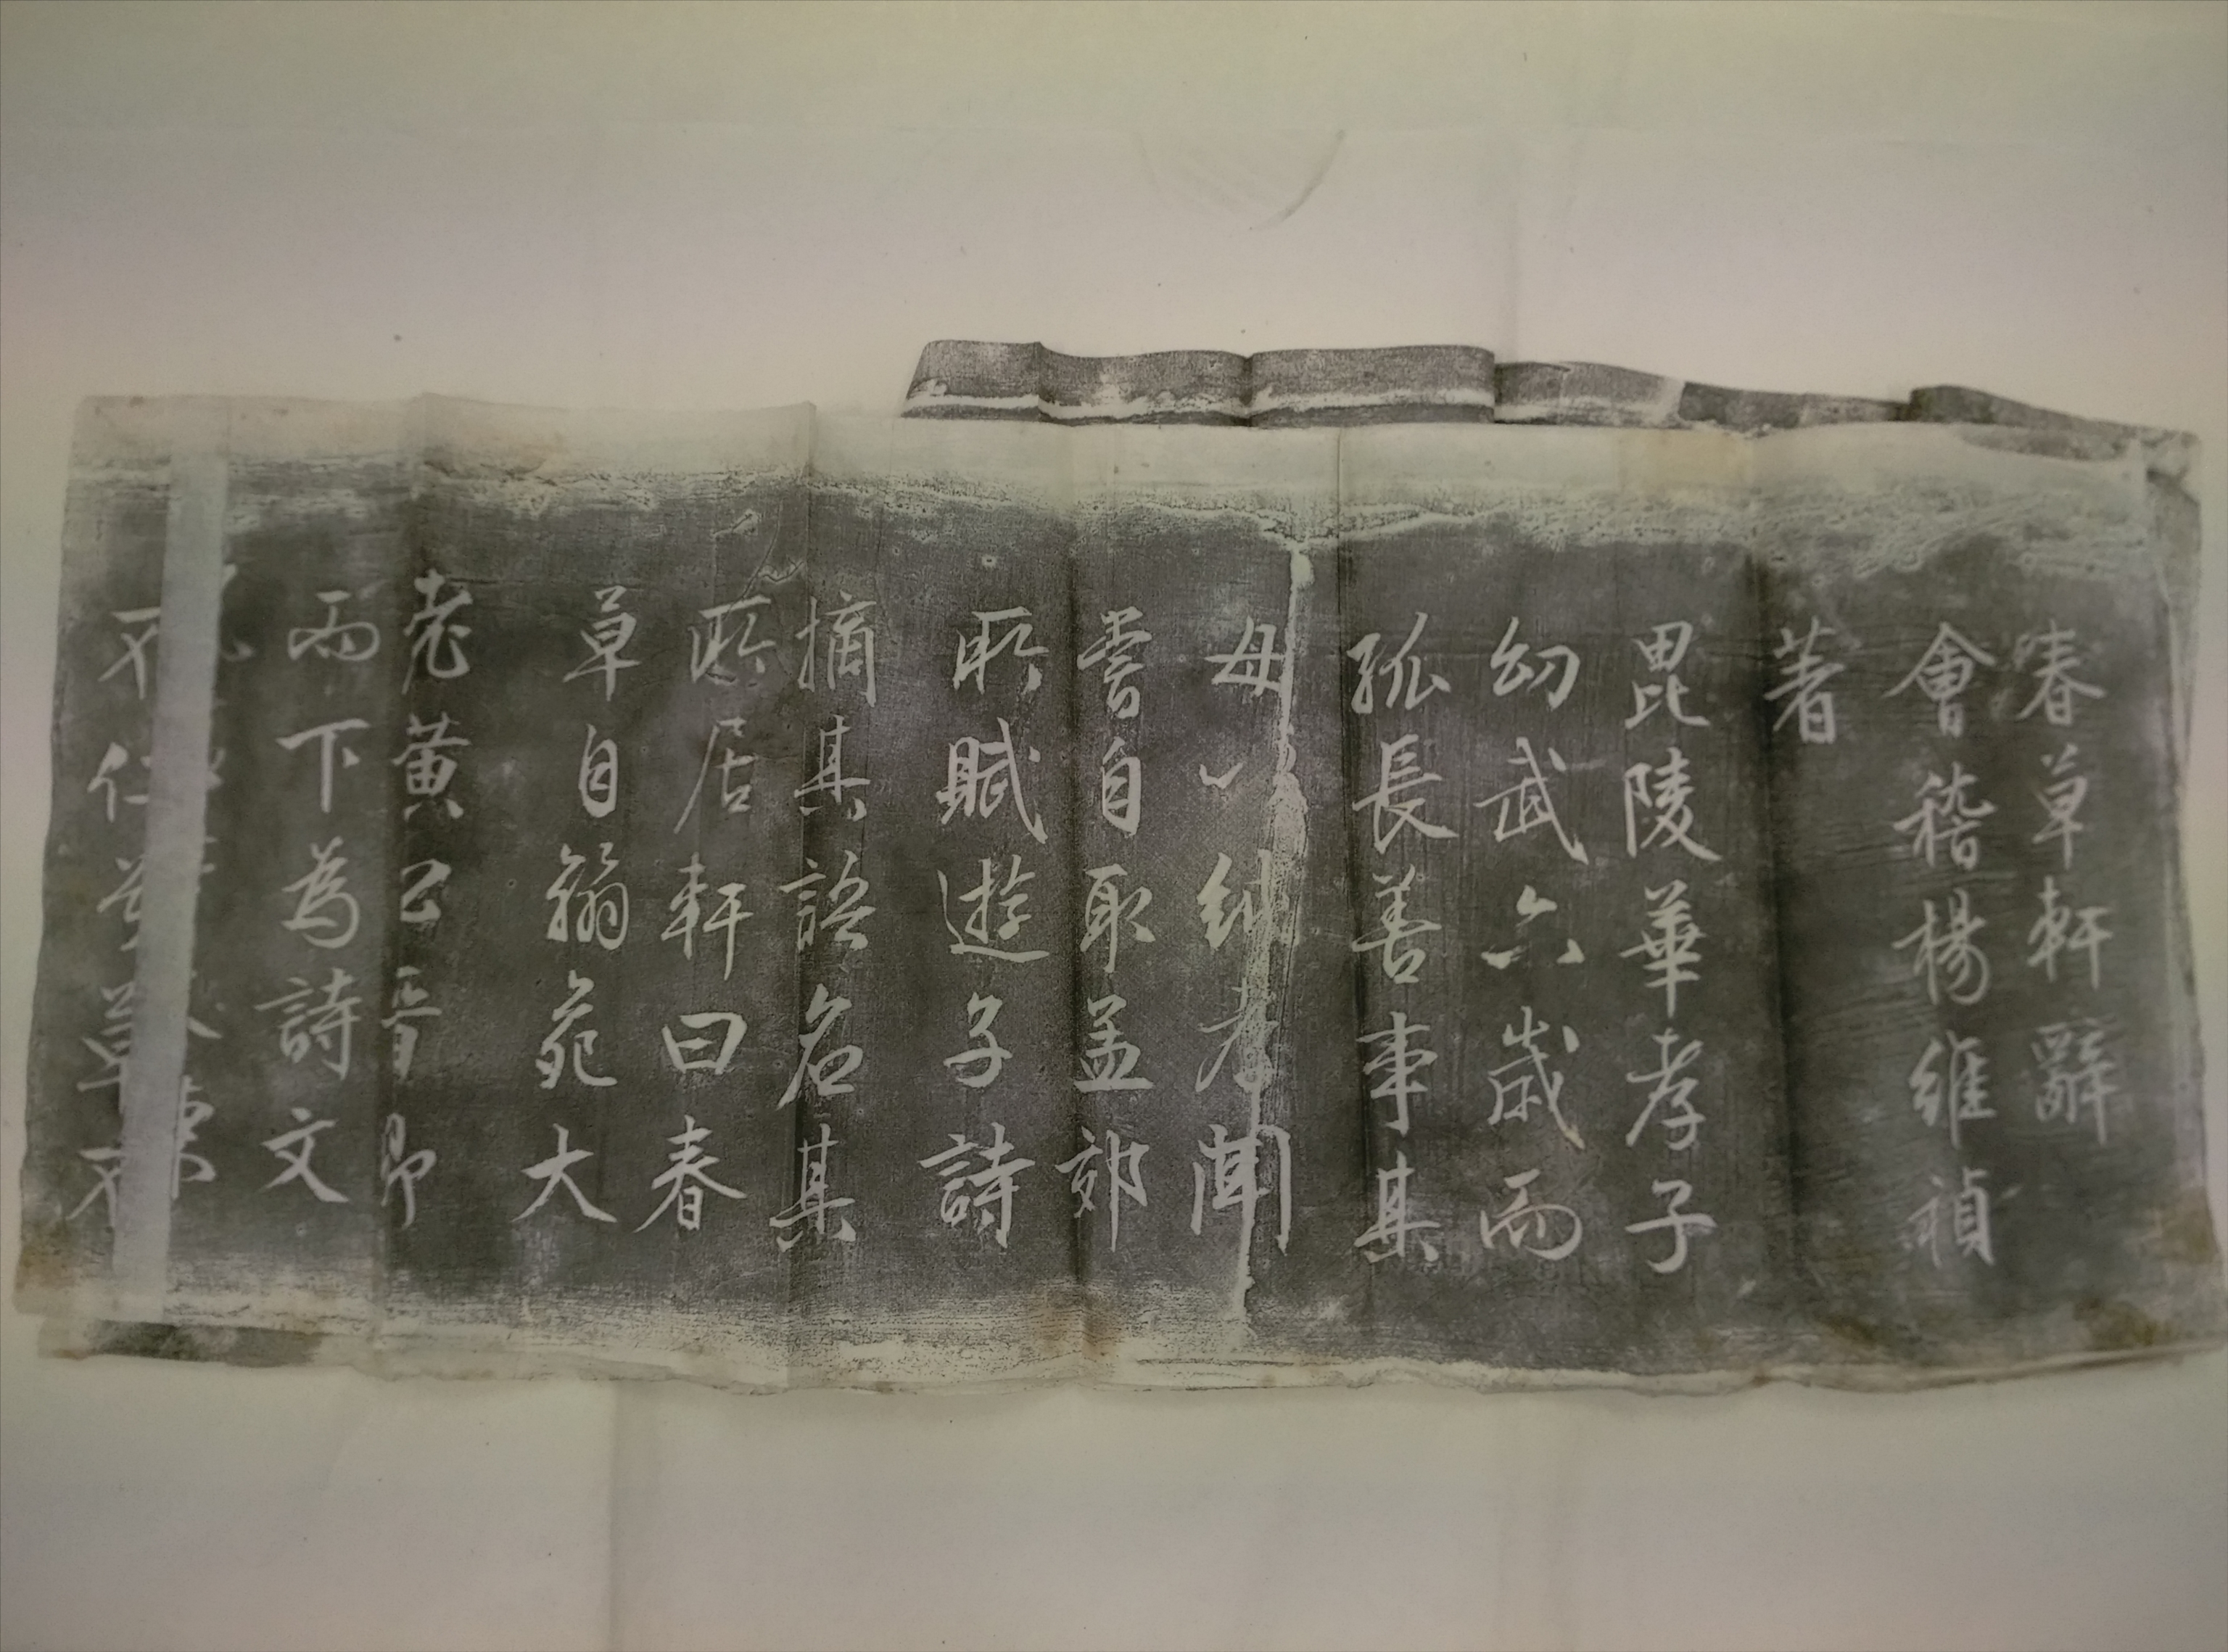 春草軒辭
會稽楊維禎
著
毘陵華孝子
幼武六歲而
孤長善事其
母以純孝聞
嘗自取孟郊
所賦遊子詩
摘其語名其
所居軒曰春
草自翰苑大
老黃公晉卿
而下為詩文
不仁